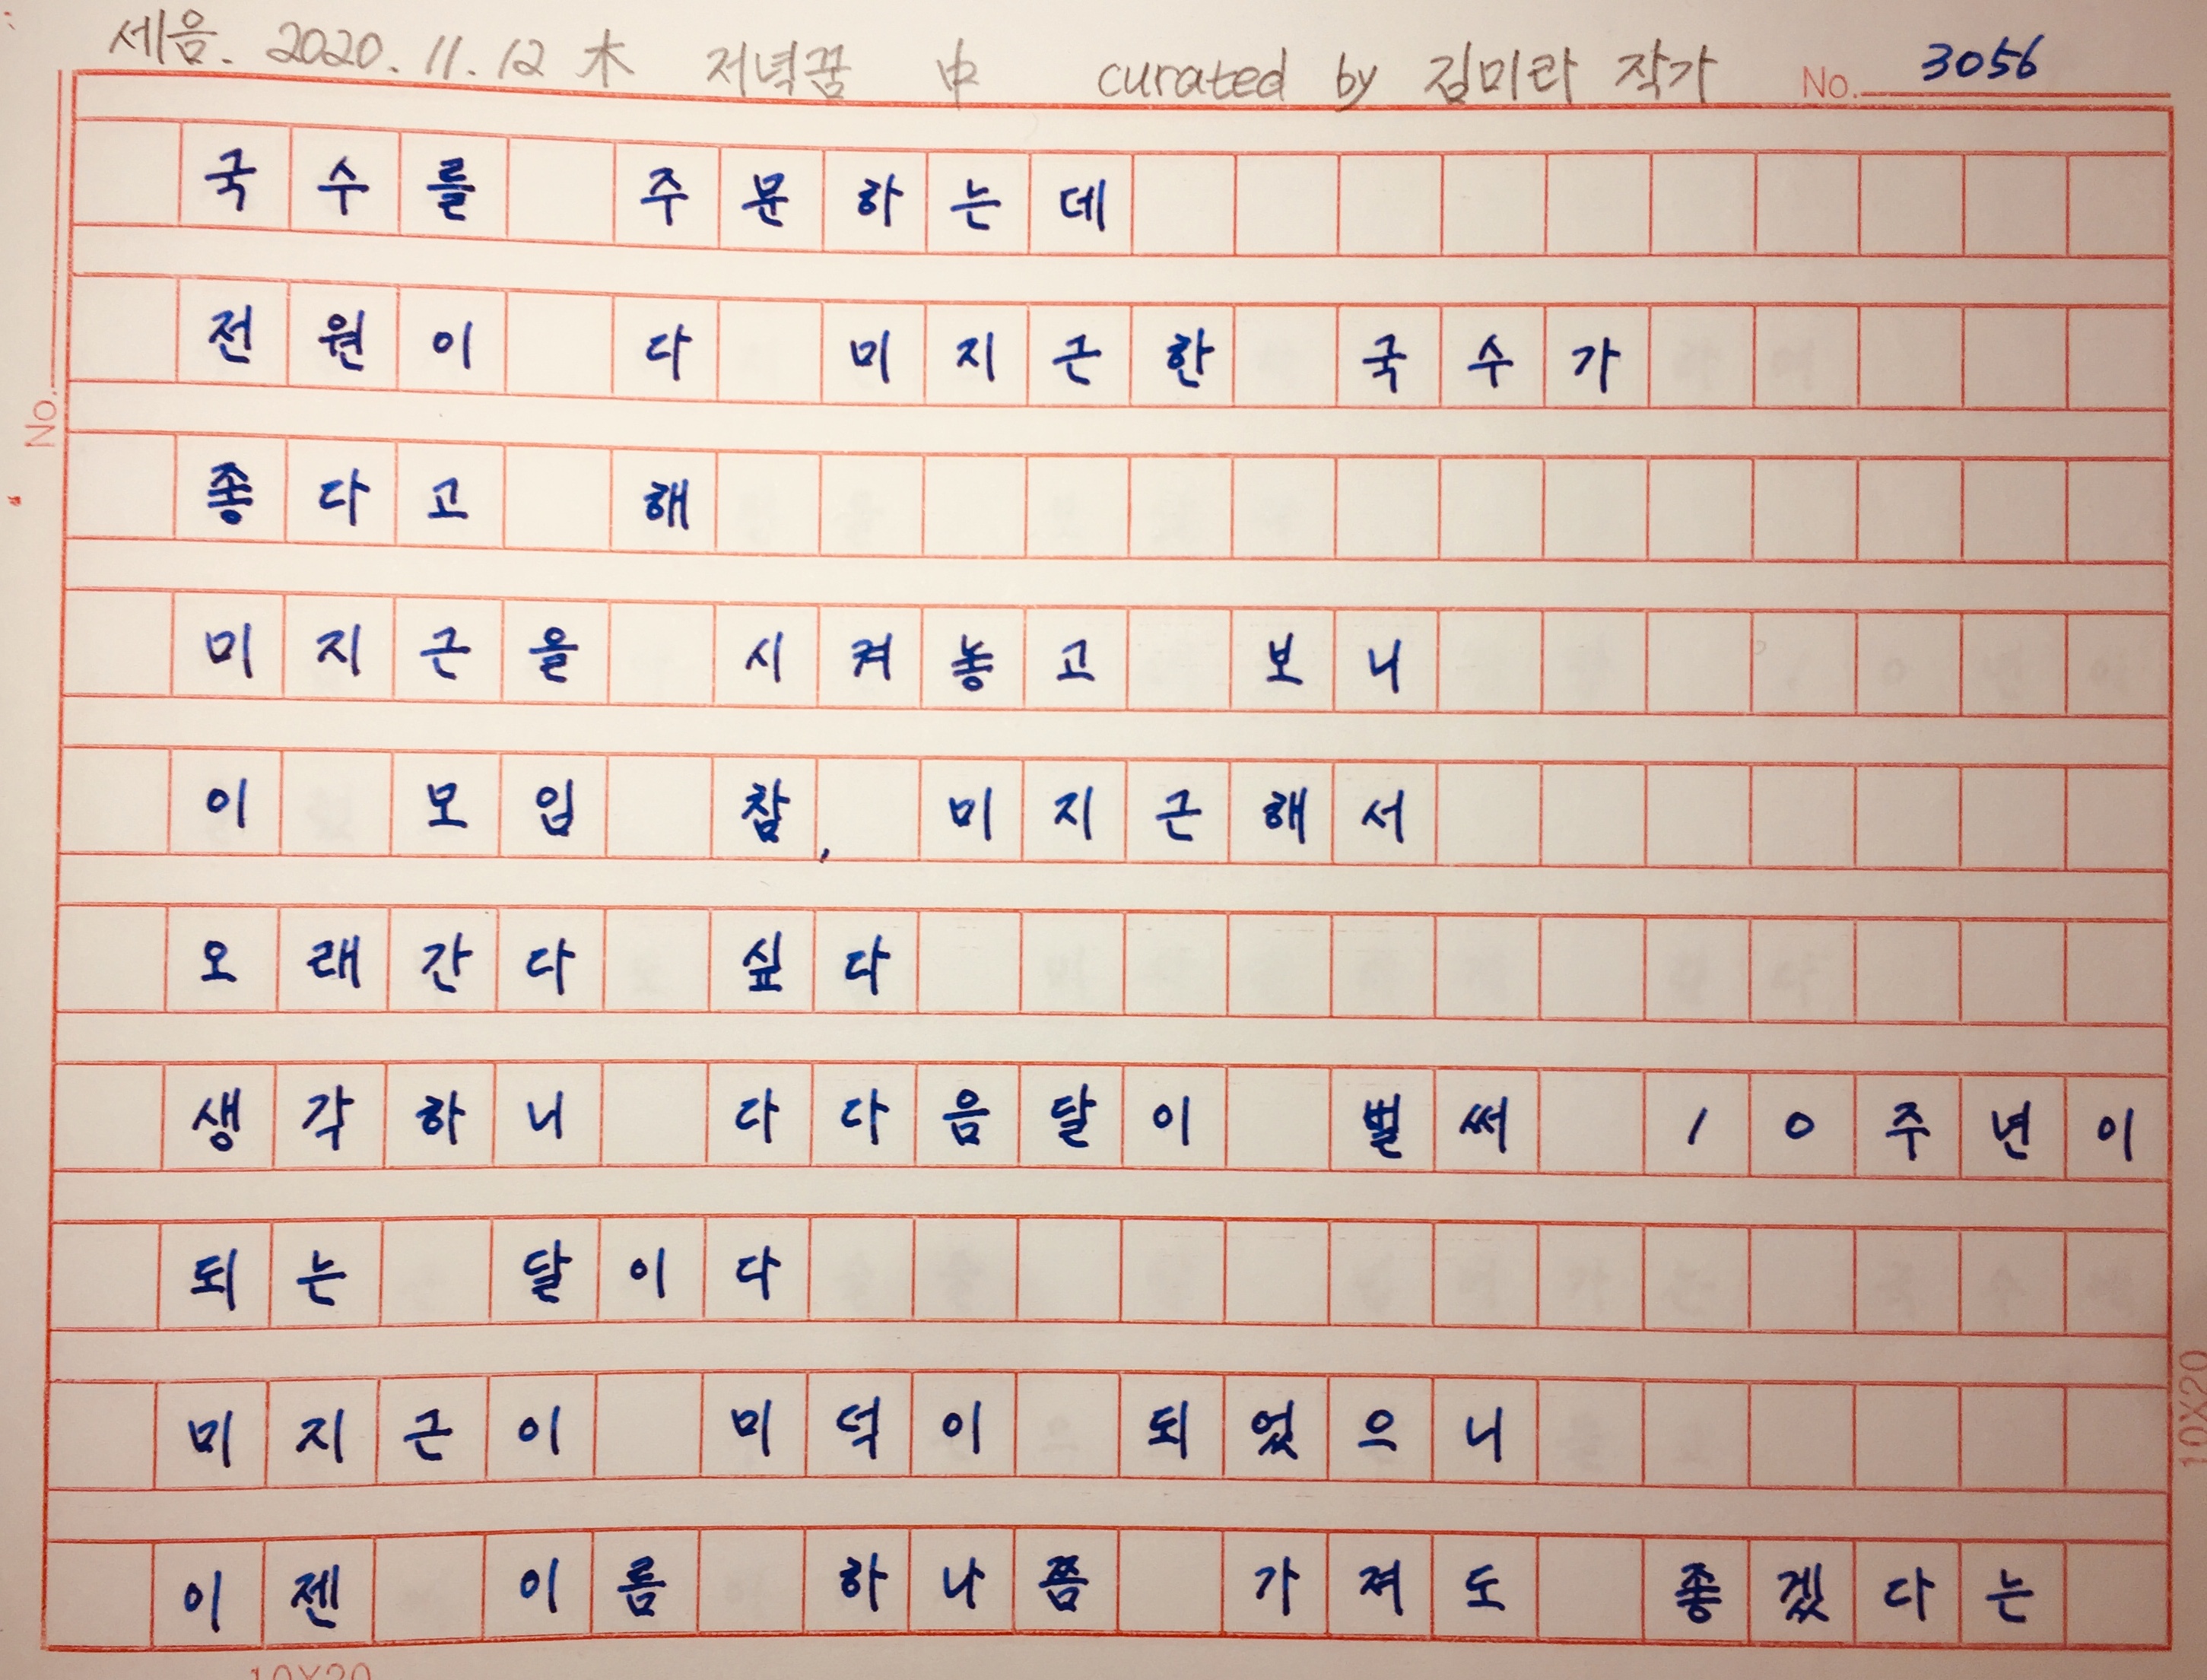 세음. 2020. 11. 12 木 저녁꿈 中 curated by 김미라 작가 No. 3056
국수를 주문하는데
전원이 다 미지근한 국수가
No.
좋다고 해
미지근을 시켜놓고 보니
이 모임 참, 미지근해서
오래간다 싶다
생각하니 다다음달이 벌써 10주년이
되는 달이다
미지근이 미덕이 되었으니
10X20
이젠 이름 하나쯤 가져도 좋겠다는
10X20